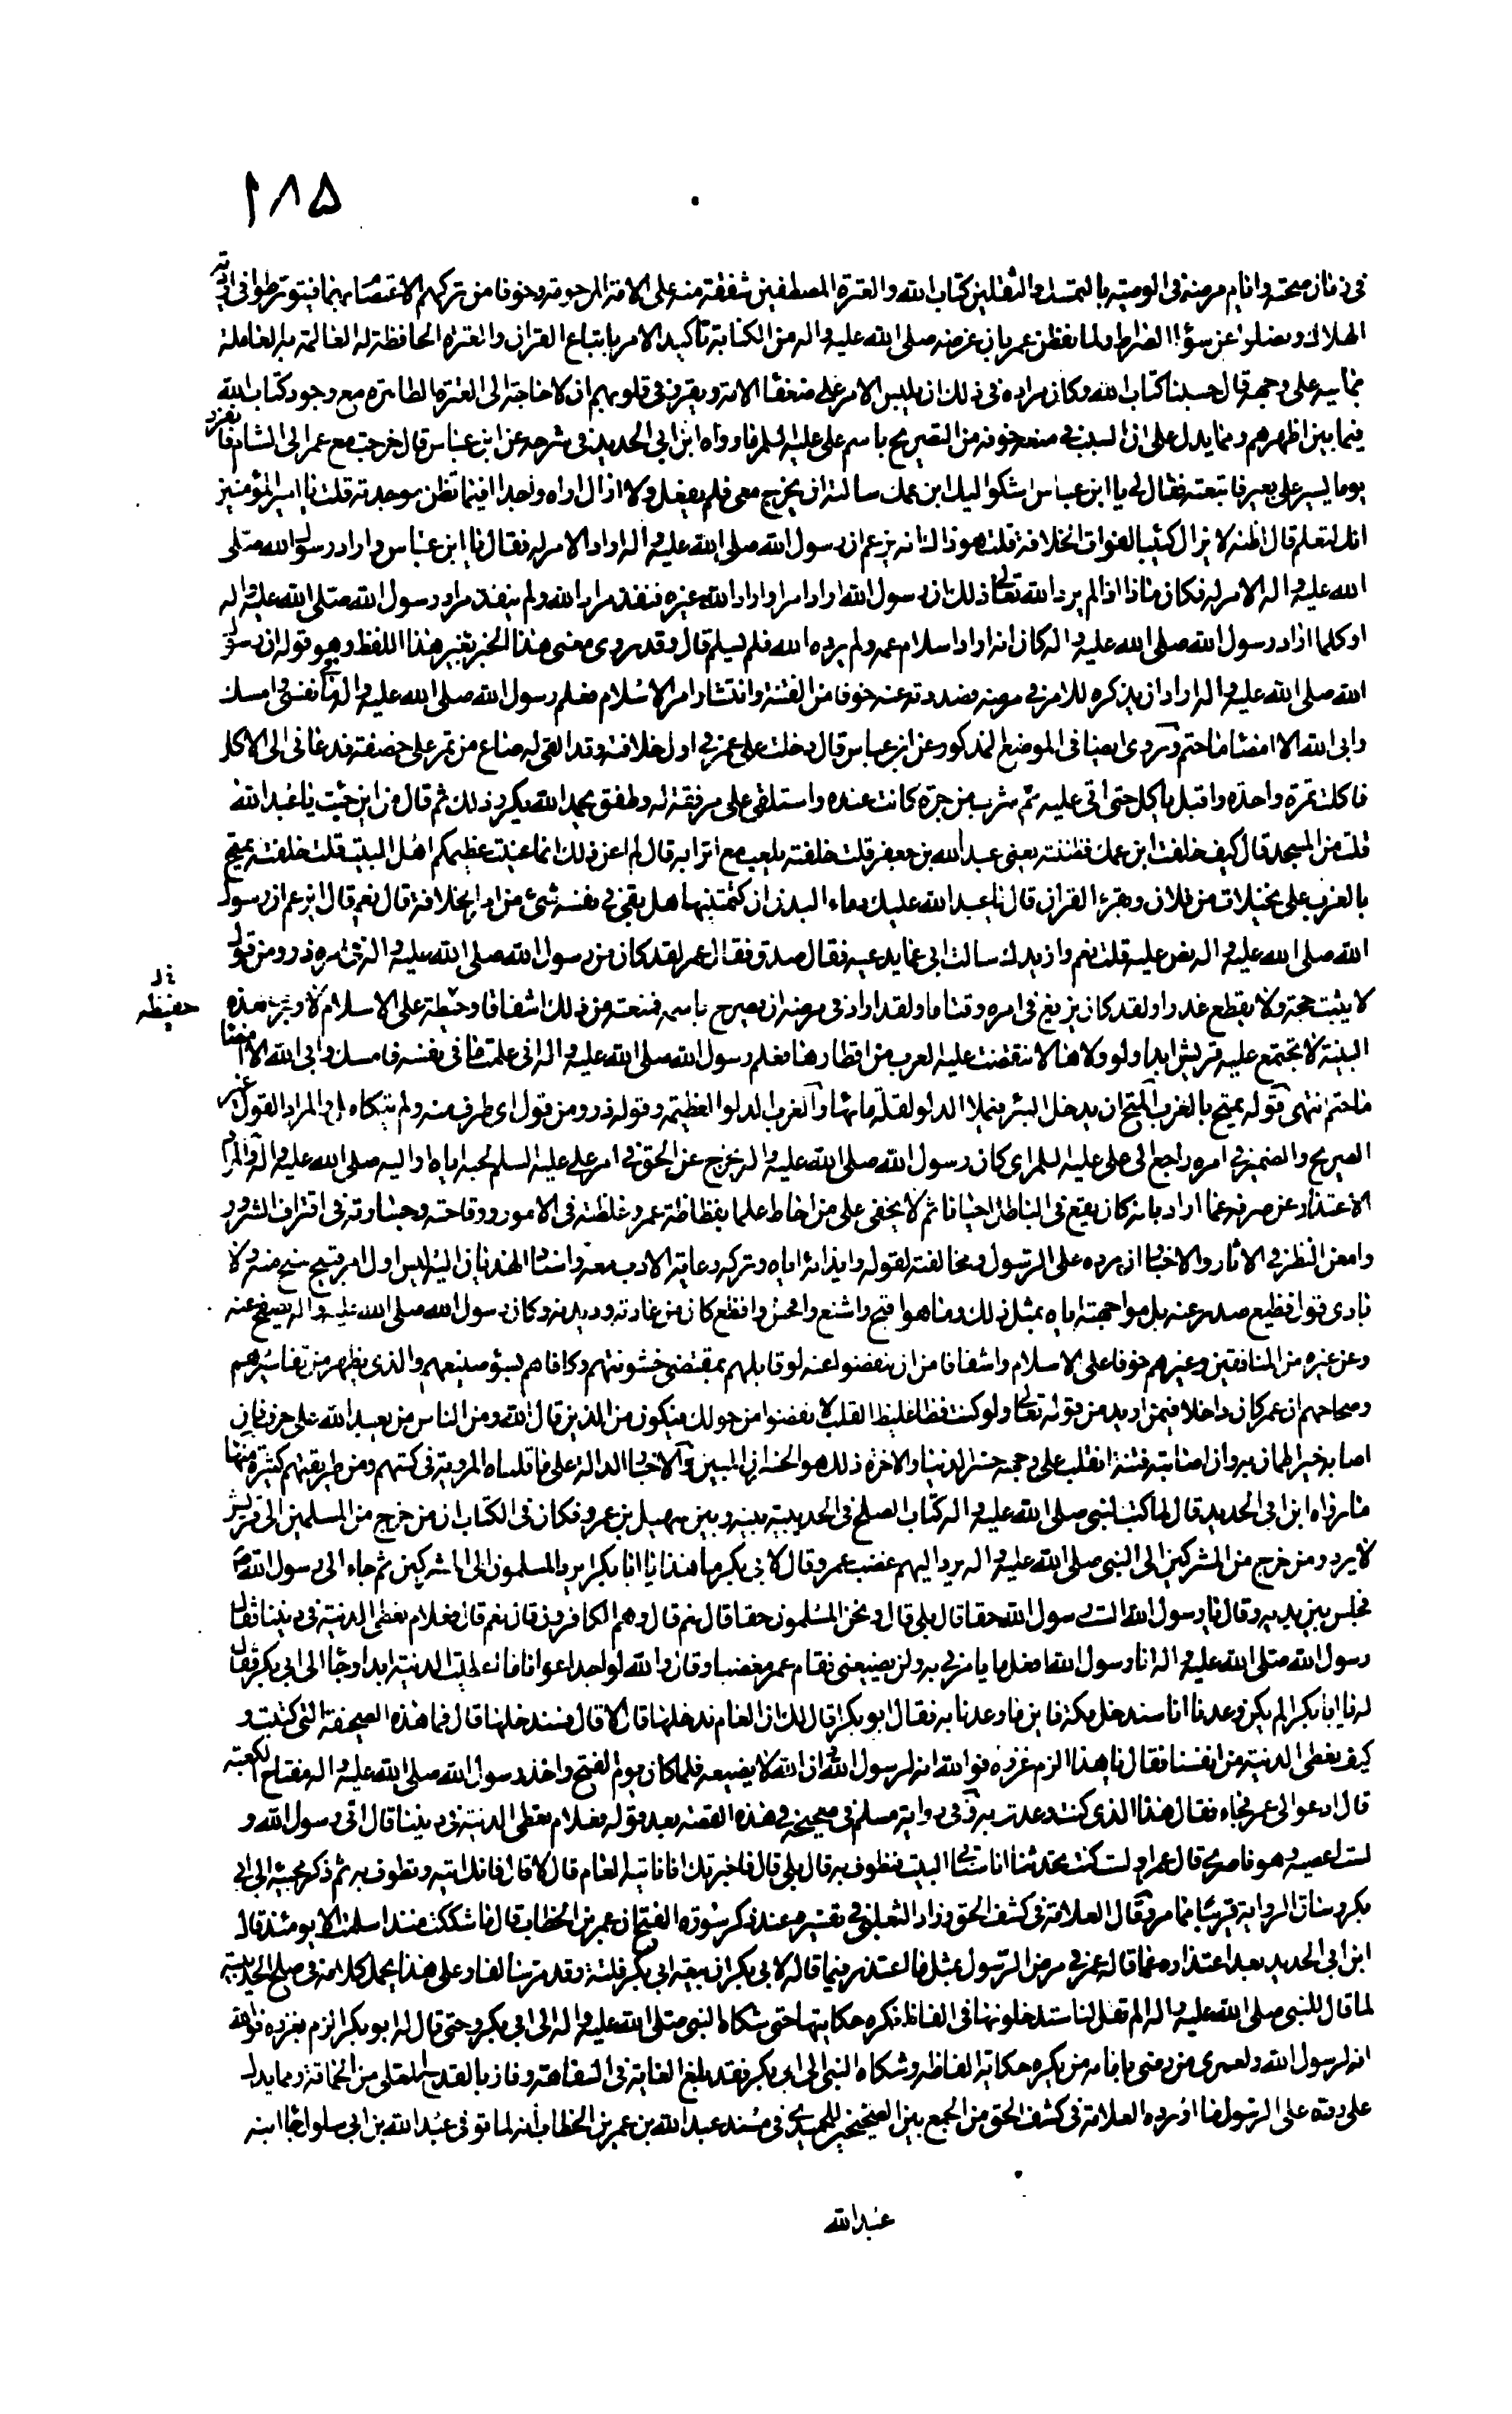 ١٨٥
في زمان صحته وايام مرضه في الوصية بالتمسك بالثقلين كتاب الله والعترة المصطفين شفقة منه على الامة المرحومة وخوفا من تركهم الاعتصام بهما فيتورطوا في اودية
الهلاك ويضلوا عن سواء الصراط ولما تفطن عمر بان غرضه صلى الله عليه واله من الكتابة تاكيد الامر باتباع القران والعترة الحافظة له العالمة به العاملة
بما فيه على وجهه قال حسبنا كتاب الله وكان مراده في ذلك ان يلبس الامر على ضعفاء الامة ويقرر في قلوبهم ان لا حاجة الى العترة الطاهرة مع وجود كتاب الله
فيما بين اظهرهم ومما يدل على ان السبب في منعه خوفه من التصريح باسم علي عليه السلم ما رواه ابن ابي الحديد في شرحه عن ابن عباس قال خرجت مع عمر الى الشام فانفرد
يوما يسير على بعير فاتبعته فقال لي يا ابن عباس اشكو اليك ابن عمك سالته ان يخرج معي فلم يفعل ولا ازال اراه واجدا فيما تظن موجدته قلت يا امير المؤمنين
انك لتعلم قال اظنه لا يزال كئيبا لفوات الخلافة قلت هو ذاك انه يزعم ان رسول الله صلى الله عليه واله اراد الامر له فقال يا ابن عباس واراد رسول الله صلى
الله عليه واله الامر له فكان ماذا اذا لم يرد الله تعالى ذلك ان رسول الله اراد امرا واراد الله غيره فنفذ مراد الله ولم ينفذ مراد رسول الله صلى الله عليه واله
اوكلما اراد رسول الله صلى الله عليه واله كان انه اراد اسلام عمه ولم يرده الله فلم يسلم قال وقد روي معنى هذا الخبر بغير هذا اللفظ وهو قوله ان رسول
الله صلى الله عليه واله اراد ان يذكره للامر في مرضه فصددته عنه خوفا من الفتنة وانتشار امر الاسلام فعلم رسول الله صلى الله عليه واله ما في نفسي وامسك
وابى الله الا امضاء ما حتم وروي ايضا في الموضع المذكور عن ابن عباس قال دخلت على عمر في اول خلافته وقد القي له صاع من تمر على خصفة فدعاني الى الاكل
فاكلت تمرة واحدة واقبل ياكل حتى اتى عليه ثم شرب من جرة كانت عنده واستلقى على مرفقة له وطفق يحمد الله يكرر ذلك ثم قال من اين جئت يا عبد الله
قلت من المسجد قال كيف خلفت ابن عمك فظننته يعني عبد الله بن جعفر قلت خلفته يلعب مع اترابه قال لم اعن ذلك انما عنيت عظيمكم اهل البيت قلت خلفته يمتح
بالغرب على نخيلات من فلان وهو يقرء القران قال يا عبد الله عليك دماء البدن ان كتمتنيها هل بقي في نفسه شيء من امر الخلافة قال نعم قال ايزعم ان رسول
الله صلى الله عليه واله نص عليه قلت نعم وازيدك سالت ابي عما يدعيه فقال صدق فقال عمر لقد كان من رسول الله صلى الله عليه واله في امره ذرو من قول
لا يثبت حجة ولا يقطع عذرا ولقد كان يزيغ في امره وقتا ما ولقد اراد في مرضه ان يصرح باسمه فمنعته من ذلك اشفاقا وحيطة على الاسلام لا ورب هذه
حفيظة
خل
البنية لا تجتمع عليه قريش ابدا ولو ولاها لانتقضت عليه العرب من اقطارها فعلم رسول الله صلى الله عليه واله اني علمت ما في نفسه فامسك وابى الله الا امضاء
ما حتم انتهى قوله يمتح بالغرب المتح ان يدخل البئر فيملا الدلو لقلة مائها والغرب الدلو العظيمة وقوله ذرو من قول اي طرف منه ولم يتكامل والمراد القول غير
الصريح والضمير في امره راجع الى علي عليه السلم اي كان رسول الله صلى الله عليه واله يخرج عن الحق في امر علي عليه السلم لحبه اياه او اليه صلى الله عليه واله والمراد
الاعتذار عن صرفه عما اراد بانه كان يقع في الباطل احيانا ثم لا يخفى على من احاط علما بفظاظة عمر وغلظته في الامور ووقاحته وجسارته في اقتراف الشرور
وامعن النظر في الاثار والاخبار ان رده على الرسول ومخالفته لقوله وايذائه اياه وتركه رعاية الادب معه واسناد الهذيان اليه ليس اول امر قبيح سنح منه ولا
بادي قول فظيع صدر عنه بل مواجهته اياه بمثل ذلك وما هو اقبح واشنع وافحش وافظع كان من عادته وديدنه وكان رسول الله صلى الله عليه واله يصفح عنه
وعن غيره من المنافقين وغيرهم خوفا على الاسلام واشفاقا من ان ينفضوا عنه لو قابلهم بمقتضى خشونتهم وكافاهم بسوء صنيعهم والذي يظهر من تفاسيرهم
وصحاحهم ان عمر كان داخلا فيمن اريد من قوله تعالى ولو كنت فظا غليظ القلب لانفضوا من حولك فيكون من الذين قال الله ومن الناس من يعبد الله على حرف فان
اصابه خير اطمان به وان اصابته فتنة انقلب على وجهه خسر الدنيا والاخرة ذلك هو الخسران المبين والاخبار الدالة على ما قلناه المروية في كتبهم ومن طريقهم كثيرة منها
ما رواه ابن ابي الحديد قال لما كتب النبي صلى الله عليه واله كتاب الصلح في الحديبية بينه وبين سهيل بن عمرو فكان في الكتاب ان من خرج من المسلمين الى قريش
لا يرد ومن خرج من المشركين الى النبي صلى الله عليه واله يرد اليهم غضب عمر وقال لابي بكر ما هذا يا ابا بكر ايرد المسلمون الى المشركين ثم جاء الى رسول الله ص
فجلس بين يديه وقال يا رسول الله الست رسول الله حقا قال بلى قال ونحن المسلمون حقا قال نعم قال وهم الكافرون قال نعم قال فعلام نعطي الدنية في ديننا فقال
رسول الله صلى الله عليه واله انا رسول الله افعل ما يامرني به ولن يضيعني فقام عمر مغضبا وقال والله لو اجد اعوانا ما اعطيت الدنية ابدا وجاء الى ابي بكر فقال
له يا ابا بكر الم يكن وعدنا انا سندخل مكة فاين ما وعدنا به فقال ابو بكر اقال لك ان العام ندخلها قال لا قال فسندخلها قال فما هذه الصحيفة التي كتبت و
كيف نعطي الدنية من انفسنا فقال يا هذا الزم غرزه فوالله انه لرسول الله وان الله لا يضيعه فلما كان يوم الفتح واخذ رسول الله صلى الله عليه واله مفتاح الكعبة
قال ادعوا لي عمر فجاء فقال هذا الذي كنت وعدت به وفي رواية مسلم في صحيحه في هذه القصة بعد قوله فعلام نعطي الدنية في ديننا قال اني رسول الله و
لست اعصيه وهو ناصري قال عمر اولست كنت تحدثنا انا سناتي البيت فنطوف به قال بلى قال فاخبرتك انا ناتيه العام قال لا قال فانك اتيه وتطوف به ثم ذكر مجيئه الى ابي
بكر وساق الرواية قريبا مما مر وقال العلامة في كشف الحق وزاد الثعلبي في تفسيره عند ذكر سورة الفتح ان عمر بن الخطاب قال ما شككت منذ اسلمت الا يومئذ قال
ابن ابي الحديد بعد اعتذاره مما قاله عمر في مرض الرسول بمثل ما اعتذر فيما قاله لابي بكر ان بيعة ابي بكر فلتة وقد مر سالفا وعلى هذا يحمل كلامه في صلح الحديبية
لما قال للنبي صلى الله عليه واله الم تقل لنا ستدخلونها في الفاظ نكره حكايتها حتى شكاه النبي صلى الله عليه واله الى ابي بكر وحتى قال له ابو بكر الزم بغرزه فوالله
انه لرسول الله ولعمري من رضي بامامة من يكره حكاية الفاظه وشكاه النبي الى ابي بكر فقد بلغ الغاية في السفاهة وفاز بالقدح المعلى من الحماقة ومما يدل
على رده على الرسول ما اورده العلامة في كشف الحق من الجمع بين الصحيحين للحميدي في مسند عبد الله بن عمر بن الخطاب انه لما توفي عبد الله بن ابي سلول جاء ابنه
عبد الله